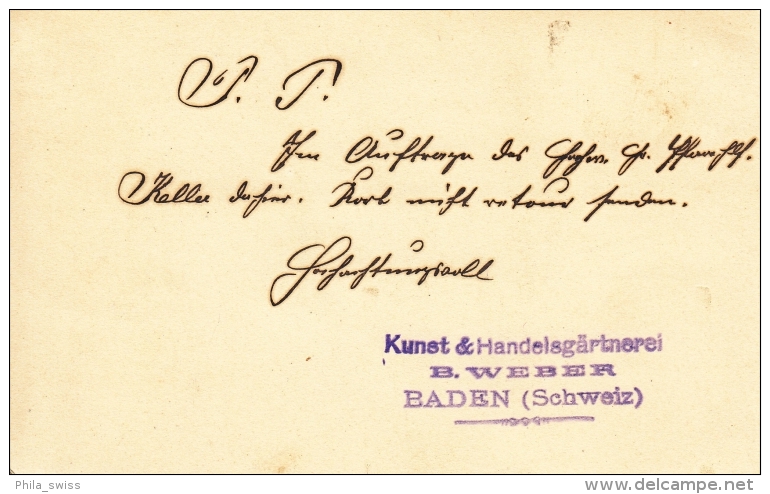 P. P.
Im Auftrage des Hochw. H. Pfarrhlf.
Keller dahier. Korb nicht retour senden.
Hochachtungsvoll
Kunst & Handelsgärtnerei
B. WEBER
BADEN (Schweiz)
Phila_swiss
www.delcampe.net